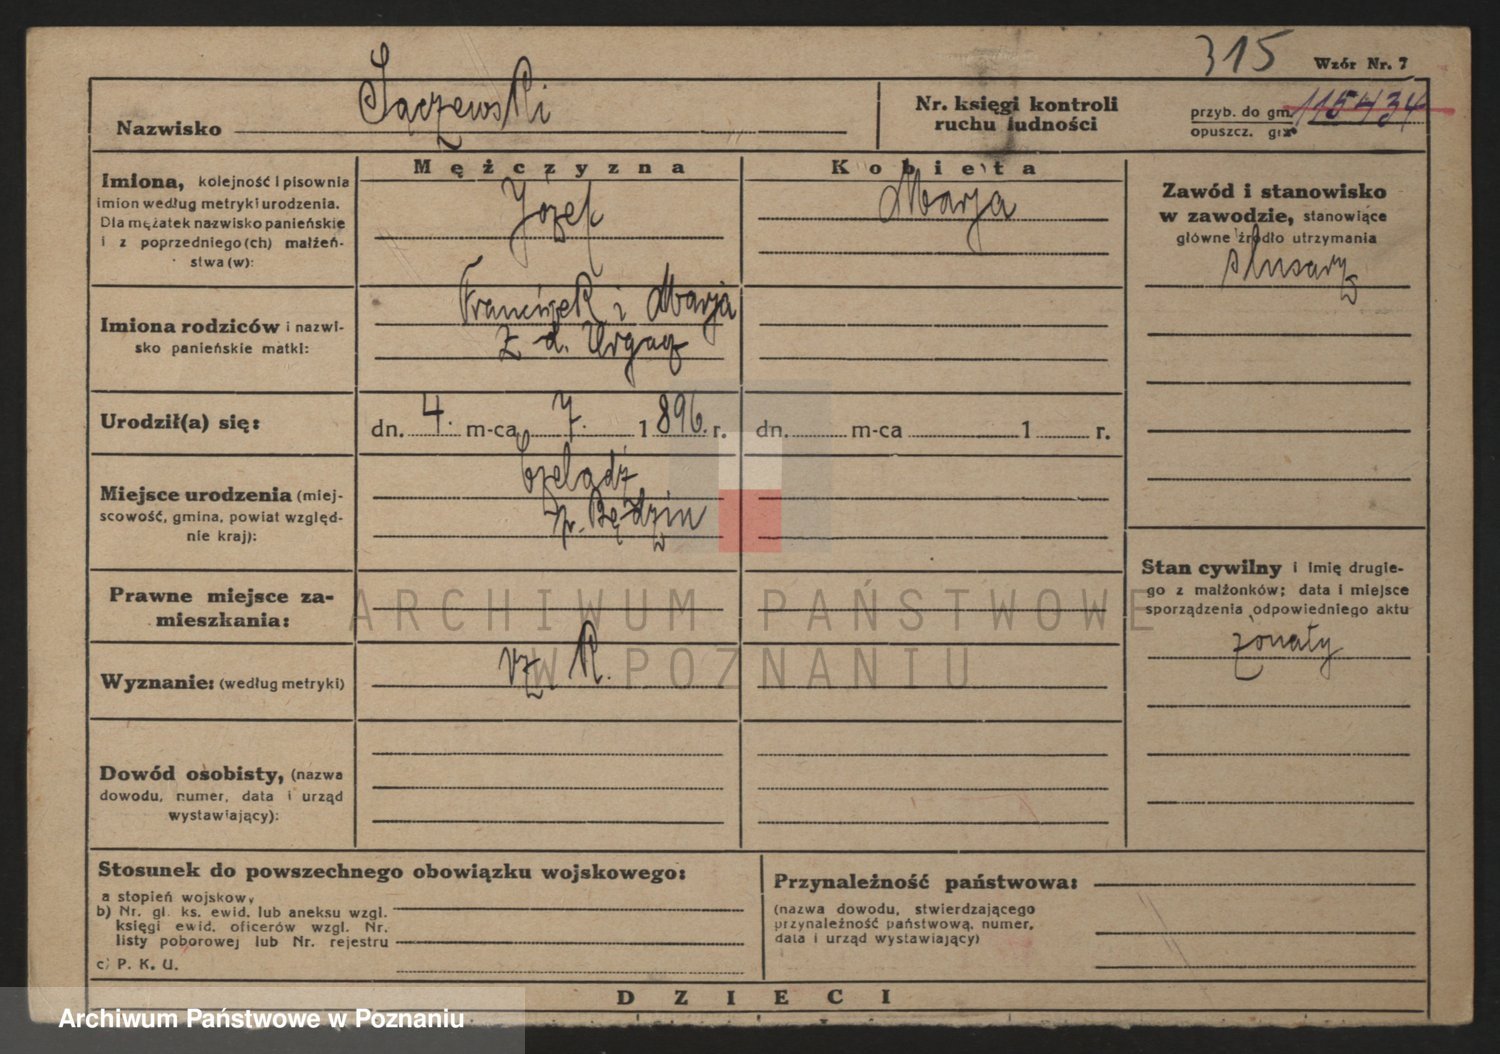 315
Wzór Nr. 7
Nazwisko Sączewski
Nr. księgi kontroli
ruchu ludności
przyb. do gm. 115434
opuszcz. gm.
Mężczyzna
Kobieta
Imiona, kolejność i pisownia
imion według metryki urodzenia.
Dla mężatek nazwisko panieńskie
i z poprzedniego (ch) małżeń-
stwa (w):
Józef
Marja
Zawód i stanowisko
w zawodzie, stanowiące
główne źródło utrzymania
ślusarz
Imiona rodziców i nazwi-
sko panieńskie matki:
Franciszek i Marja
z d.
Urodził(a) się:
dn. 4. m-ca 7. 1896. r.
dn. m-ca 1 r.
Miejsce urodzenia (miej-
scowość, gmina, powiat względ-
nie kraj):
Czeladź
p. Będzin
Stan cywilny i imię drugie-
go z małżonków; data i miejsce
sporządzenia odpowiedniego aktu
żonaty
Prawne miejsce za-
mieszkania:
Wyznanie: (według metryki)
rz. K.
Dowód osobisty, (nazwa
dowodu, numer, data i urząd
wystawiający):
Stosunek do powszechnego obowiązku wojskowego:
a stopień wojskowy
b) Nr. gl. ks. ewid. lub aneksu wzgl.
księgi ewid. oficerów wzgl. Nr.
listy poborowej lub Nr. rejestru
c) P. K. U.
Przynależność państwowa:
(nazwa dowodu, stwierdzającego
przynależność państwową, numer,
data i urząd wystawiający)
DZIECI
ARCHIWUM PAŃSTWOWE
W POZNANIU
Archiwum Państwowe w Poznaniu